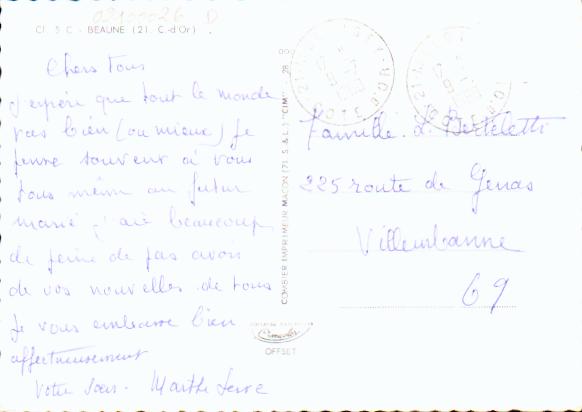 02100026 D
BEAUNE (21. C.-d'Or)
Chers tous
j'espère que tout le monde
vas bien (ou mieux) Je
pense souvent à vous
tous même au futur
marié j'ai beaucoup
de peine de pas avoir
de vos nouvelles de tous
Je vous embrasse bien
affectueusement
Votre Marthe
COMBIER IMPRIMEUR MACON (71. S.-&-L.) "CIM"
OFFSET
Famille. L. Berteletti
225 route de Genas
Villeurbanne
69